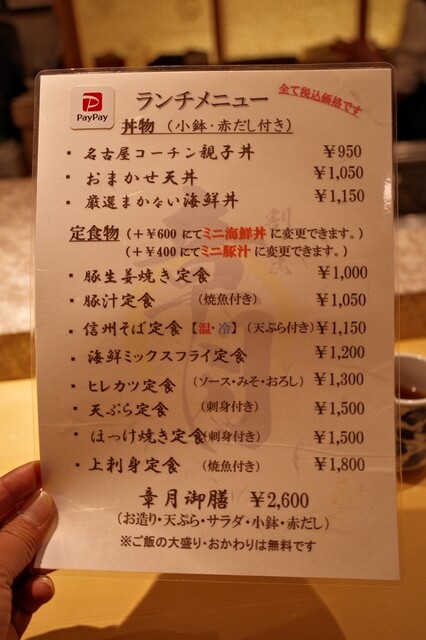 PayPay
ランチメニュー
全て税込価格です
丼物 (小鉢・赤だし付き)
・名古屋コーチン親子丼 ¥950
・おまかせ天丼 ¥1,050
・厳選まかない海鮮丼 ¥1,150
定食物 (+¥600にてミニ海鮮丼に変更できます。)
(+¥400にてミニ豚汁に変更できます。)
・豚生姜焼き定食 ¥1,000
・豚汁定食 (焼魚付き) ¥1,050
・信州そば定食【温・冷】(天ぷら付き) ¥1,150
・海鮮ミックスフライ定食 ¥1,200
・ヒレカツ定食 (ソース・みそ・おろし) ¥1,300
・天ぷら定食 (刺身付き) ¥1,500
・ほっけ焼き定食(刺身付き) ¥1,500
・上刺身定食 (焼魚付き) ¥1,800
章月御膳 ¥2,600
(お造り・天ぷら・サラダ・小鉢・赤だし)
※ご飯の大盛り・おかわりは無料です